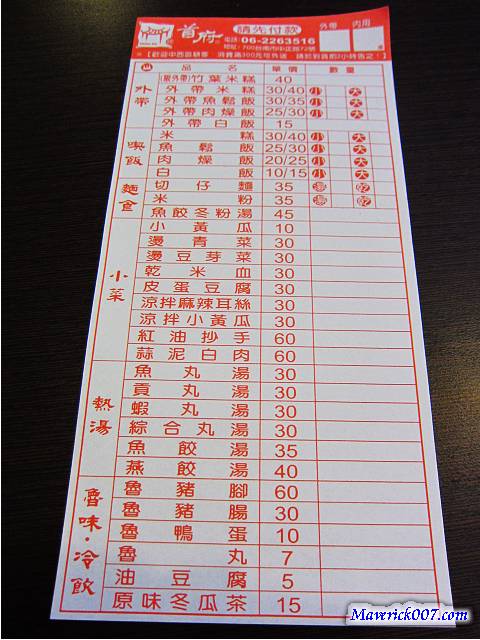 首府 請先付款 外帶 內用
電話: 06-2263516
地址: 700台南市中正路72號
品名 單價 數量
外帶
(限外帶)竹葉米糕 40
外帶米糕 30/40 小 大
外帶魚鬆飯 30/35 小 大
外帶肉燥飯 25/30 小 大
外帶白飯 15
喫飯
米糕 30/40 小 大
魚鬆飯 25/30 小 大
肉燥飯 20/25 小 大
白飯 10/15 小 大
麵食
切仔麵 35 湯 乾
米粉 35 湯 乾
魚餃冬粉湯 45
小菜
小黃瓜 10
燙青菜 30
燙豆芽菜 30
乾米血 30
皮蛋豆腐 30
涼拌麻辣耳絲 30
涼拌小黃瓜 30
紅油抄手 60
蒜泥白肉 60
熱湯
魚丸湯 30
貢丸湯 30
蝦丸湯 30
綜合丸湯 30
魚餃湯 35
燕餃湯 40
魯味·冷飲
魯豬腳 60
魯豬腸 30
魯鴨蛋 10
魯丸 7
油豆腐 5
原味冬瓜茶 15
Maverick007.com